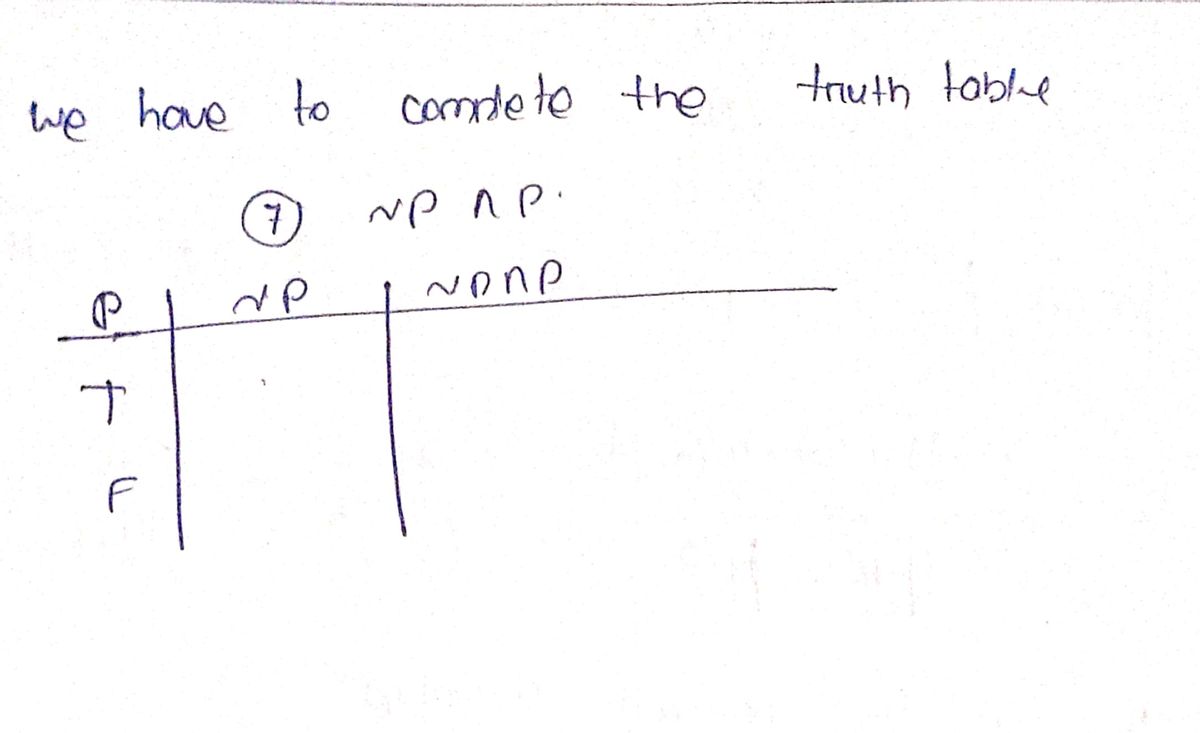 we have to complete the truth table
⑦ ~P ∧ P.
P ~P ~P∧P
T
F